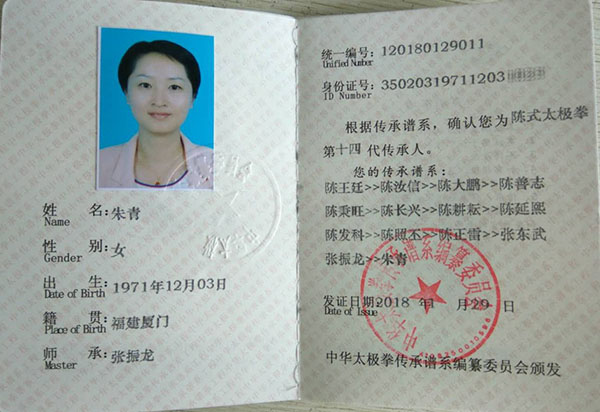 姓 名: 朱青
Name
性 别: 女
Gender
出 生: 1971年12月03日
Date of Birth
籍 贯: 福建厦门
Place of Birth
师 承: 张振龙
Master
统一编号: 120180129011
Unified Number
身份证号: 35020319711203
ID Number
根据传承谱系,确认您为陈式太极拳
第十四 代传承人。
您的传承谱系:
陈王廷>>陈汝信>>陈大鹏>>陈善志
陈秉旺>>陈长兴>>陈耕耘>>陈延熙
陈发科>>陈照丕>>陈正雷>>张东武
张振龙>>朱青
发证日期:2018 年 1 月 29 日
Date of Issue
中华太极拳传承谱系编纂委员会颁发